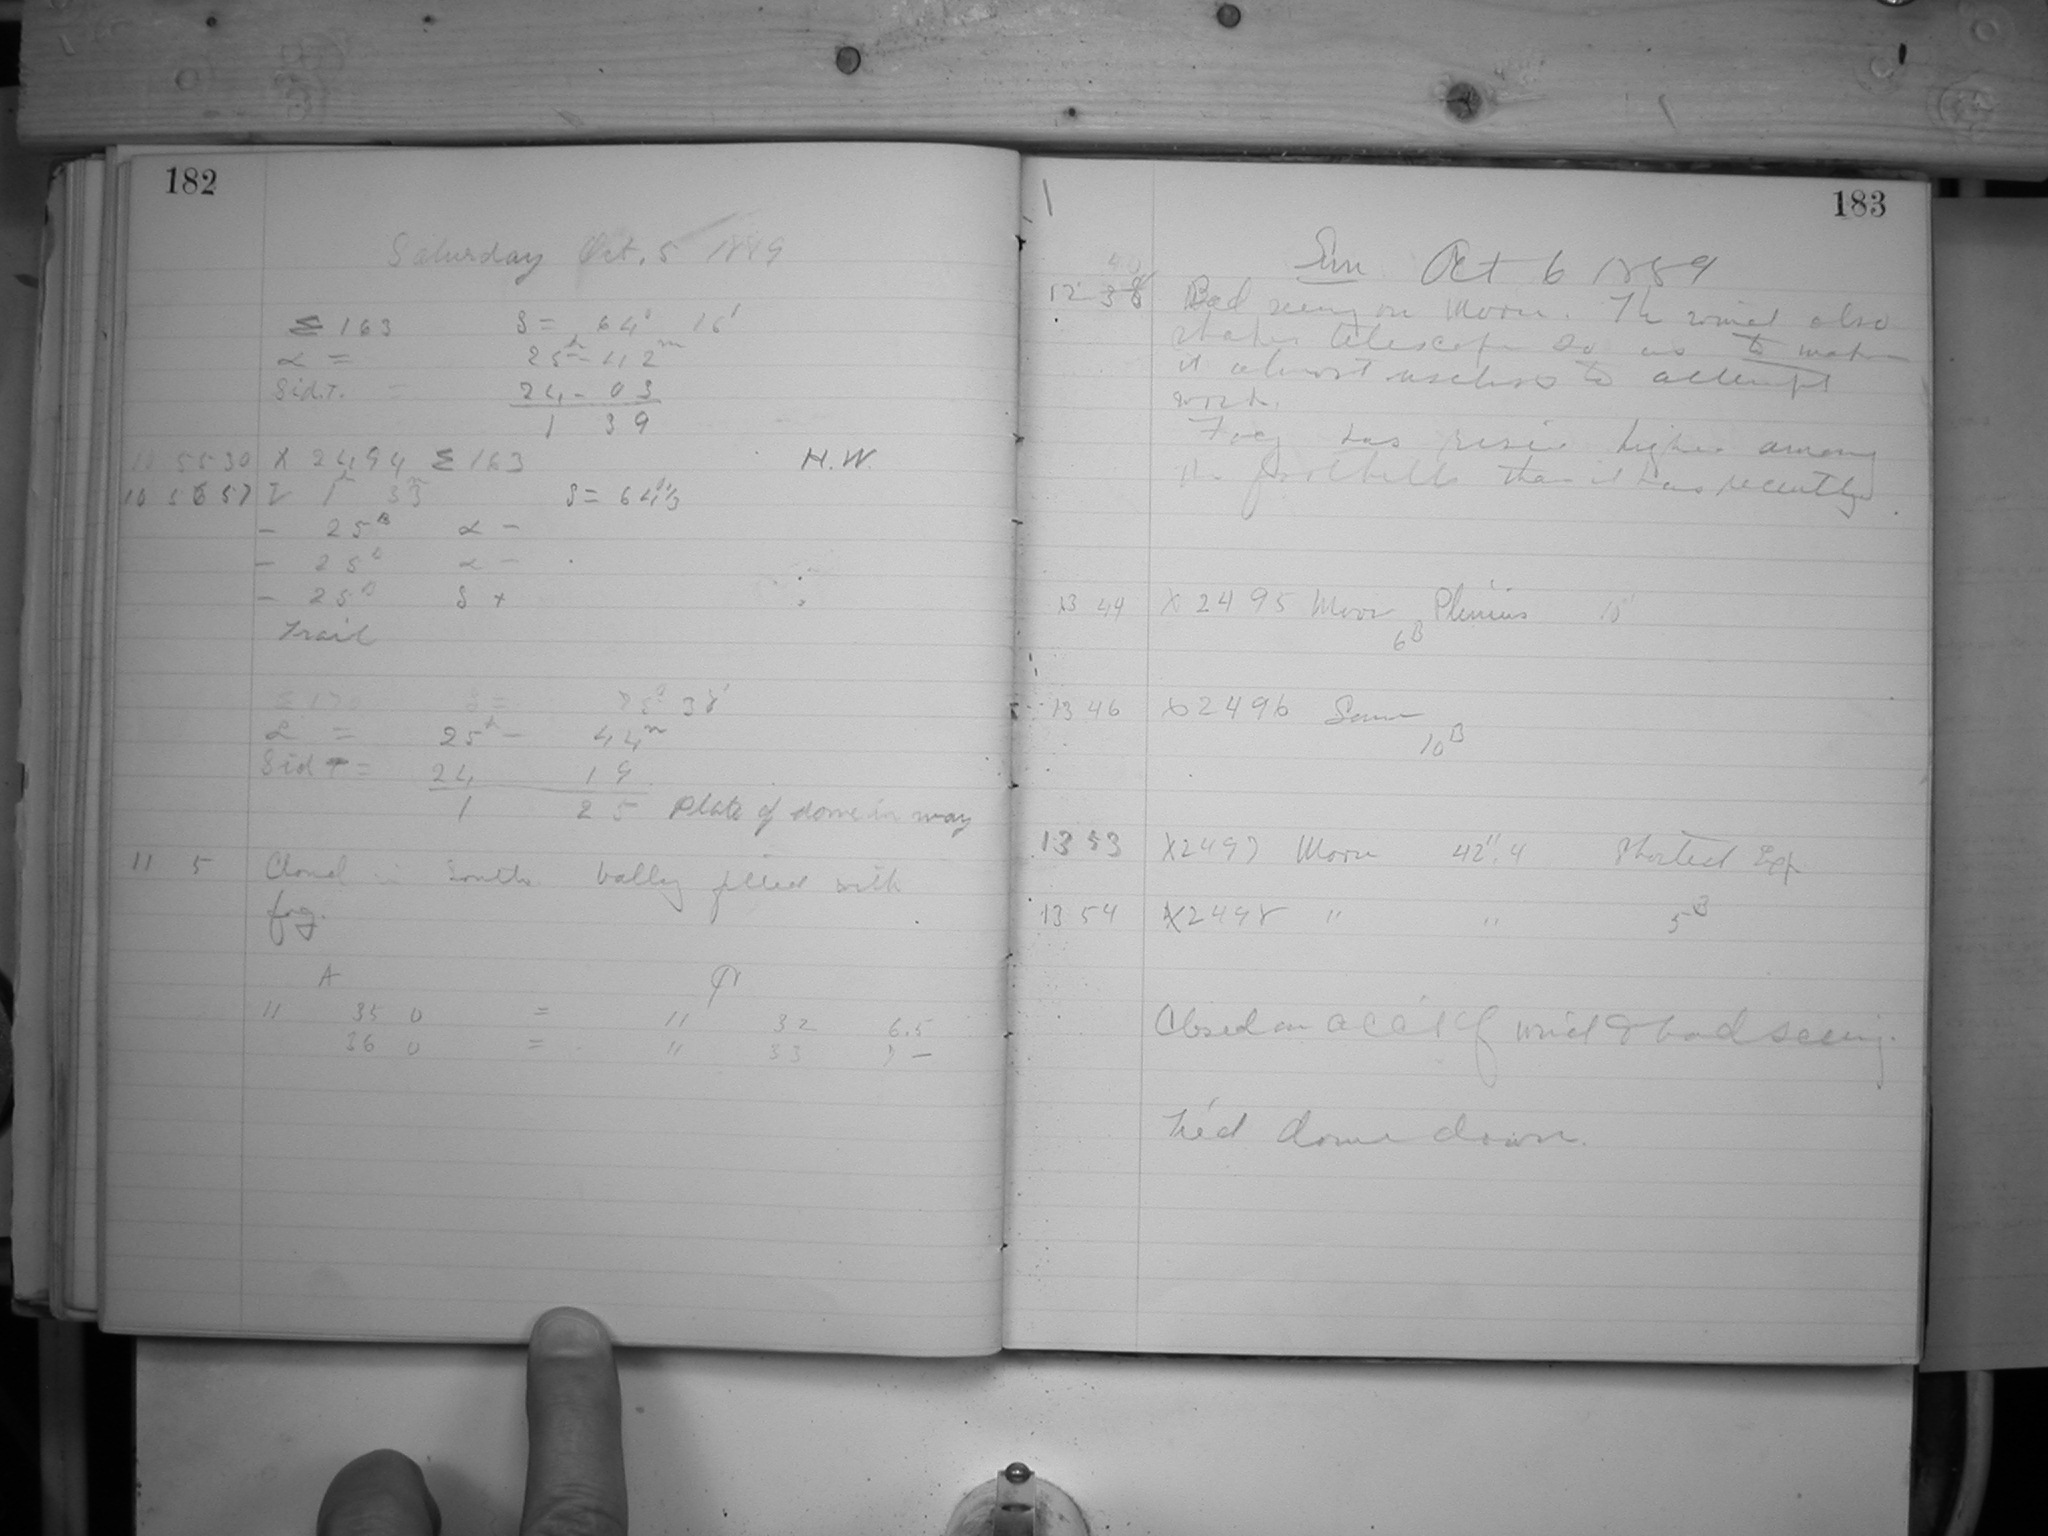 182
Saturday Oct. 5 1889
Σ 163 δ = 64° 16'
α = 25h - 42m
Sid.T. = 24 - 03
1 39
10 55 30 X 2494 Σ 163 H.W.
10 56 57 δ = 64°.3
- 25B α -
- 25B α -
- 25B δ +
Trail
δ = 38'
α = 25h - 44m
Sid T = 24 19
1 25 Plate of dome in way
11 5 Cloud in South valley filled with
fog.
A
11 35 0 = 11 32 6.5
36 0 = " 33 7 -
183
Sun Oct 6 1889
40
12 38 Bad seeing on Moon. The wind also
shakes telescope so as to make
it almost useless to attempt
work.
Fog has risen higher among
the foothills than it has recently.
13 44 X 2495 Moon Plinius 10"
6B
13 46 X 2496 Same
10B
13 53 X 2497 Moon 42".4 Shortest Exp
13 54 X 2498 " " 5B
Closed on acct of wind & bad seeing.
Tied dome down.